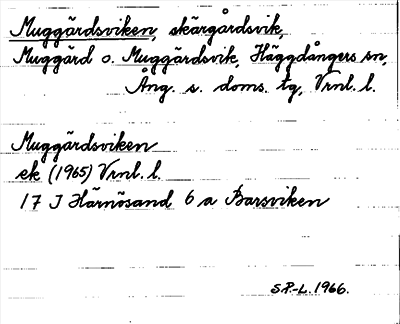 Muggärdsviken, skärgårdsvik,
Muggärd o. Muggärdsvik, Häggdångers sn,
Ång. s. doms. tg, Vrnl. l.
Muggärdsviken
ek (1965) Vrnl. l.
17 I Härnösand 6 a Barsviken
S.P.-L. 1966.